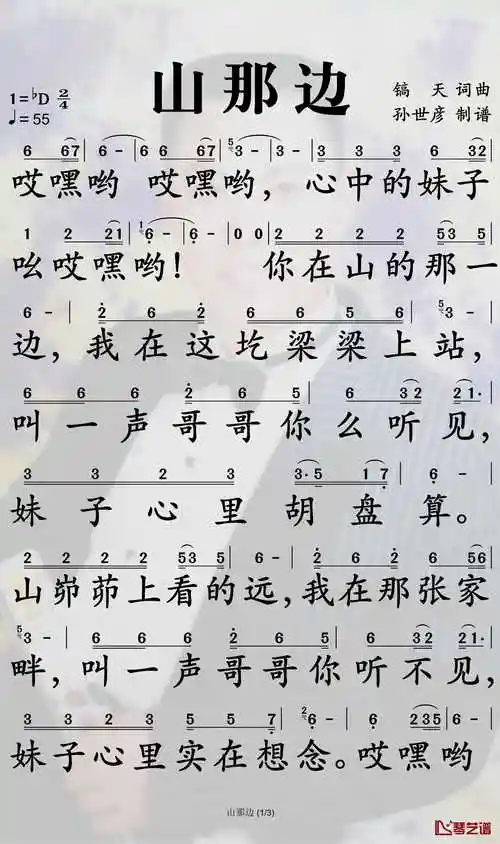 山那边
1=♭D 2/4
♩=55
镐 天 词曲
孙世彦 制谱
6 67 | 6 - | 6 67 | 5 3 - | 3 - | 3 3 3 | 6 32 |
哎嘿哟 哎嘿哟，心中的妹子
1 2 21 | 1 6 - | 6 - | 0 0 | 2 2 2 2 | 53 5 |
吆哎嘿哟！ 你在山的那一
6 - | 2 6 2 | 6 6 5 6 | 5 3 - |
边，我在这圪梁梁上站，
6 6 6 | 2 6 5 | 6 32 | 21· |
叫一声哥哥你么听见，
3 3 2 3 | 3·5 17 | 6 - |
妹子心里胡盘算。
2 2 2 2 | 53 5 | 6 - | 2 6 2 | 6 56 |
山峁茆上看的远，我在那张家
5 3 - | 6 6 6 | 2 6 5 | 6 32 | 21· |
畔，叫一声哥哥你听不见，
3 3 2 3 | 5 5 5 7 | 2 6 - | 6 - | 6 235 | 6 - |
妹子心里实在想念。哎嘿哟
山那边 (1/3)
琴艺谱